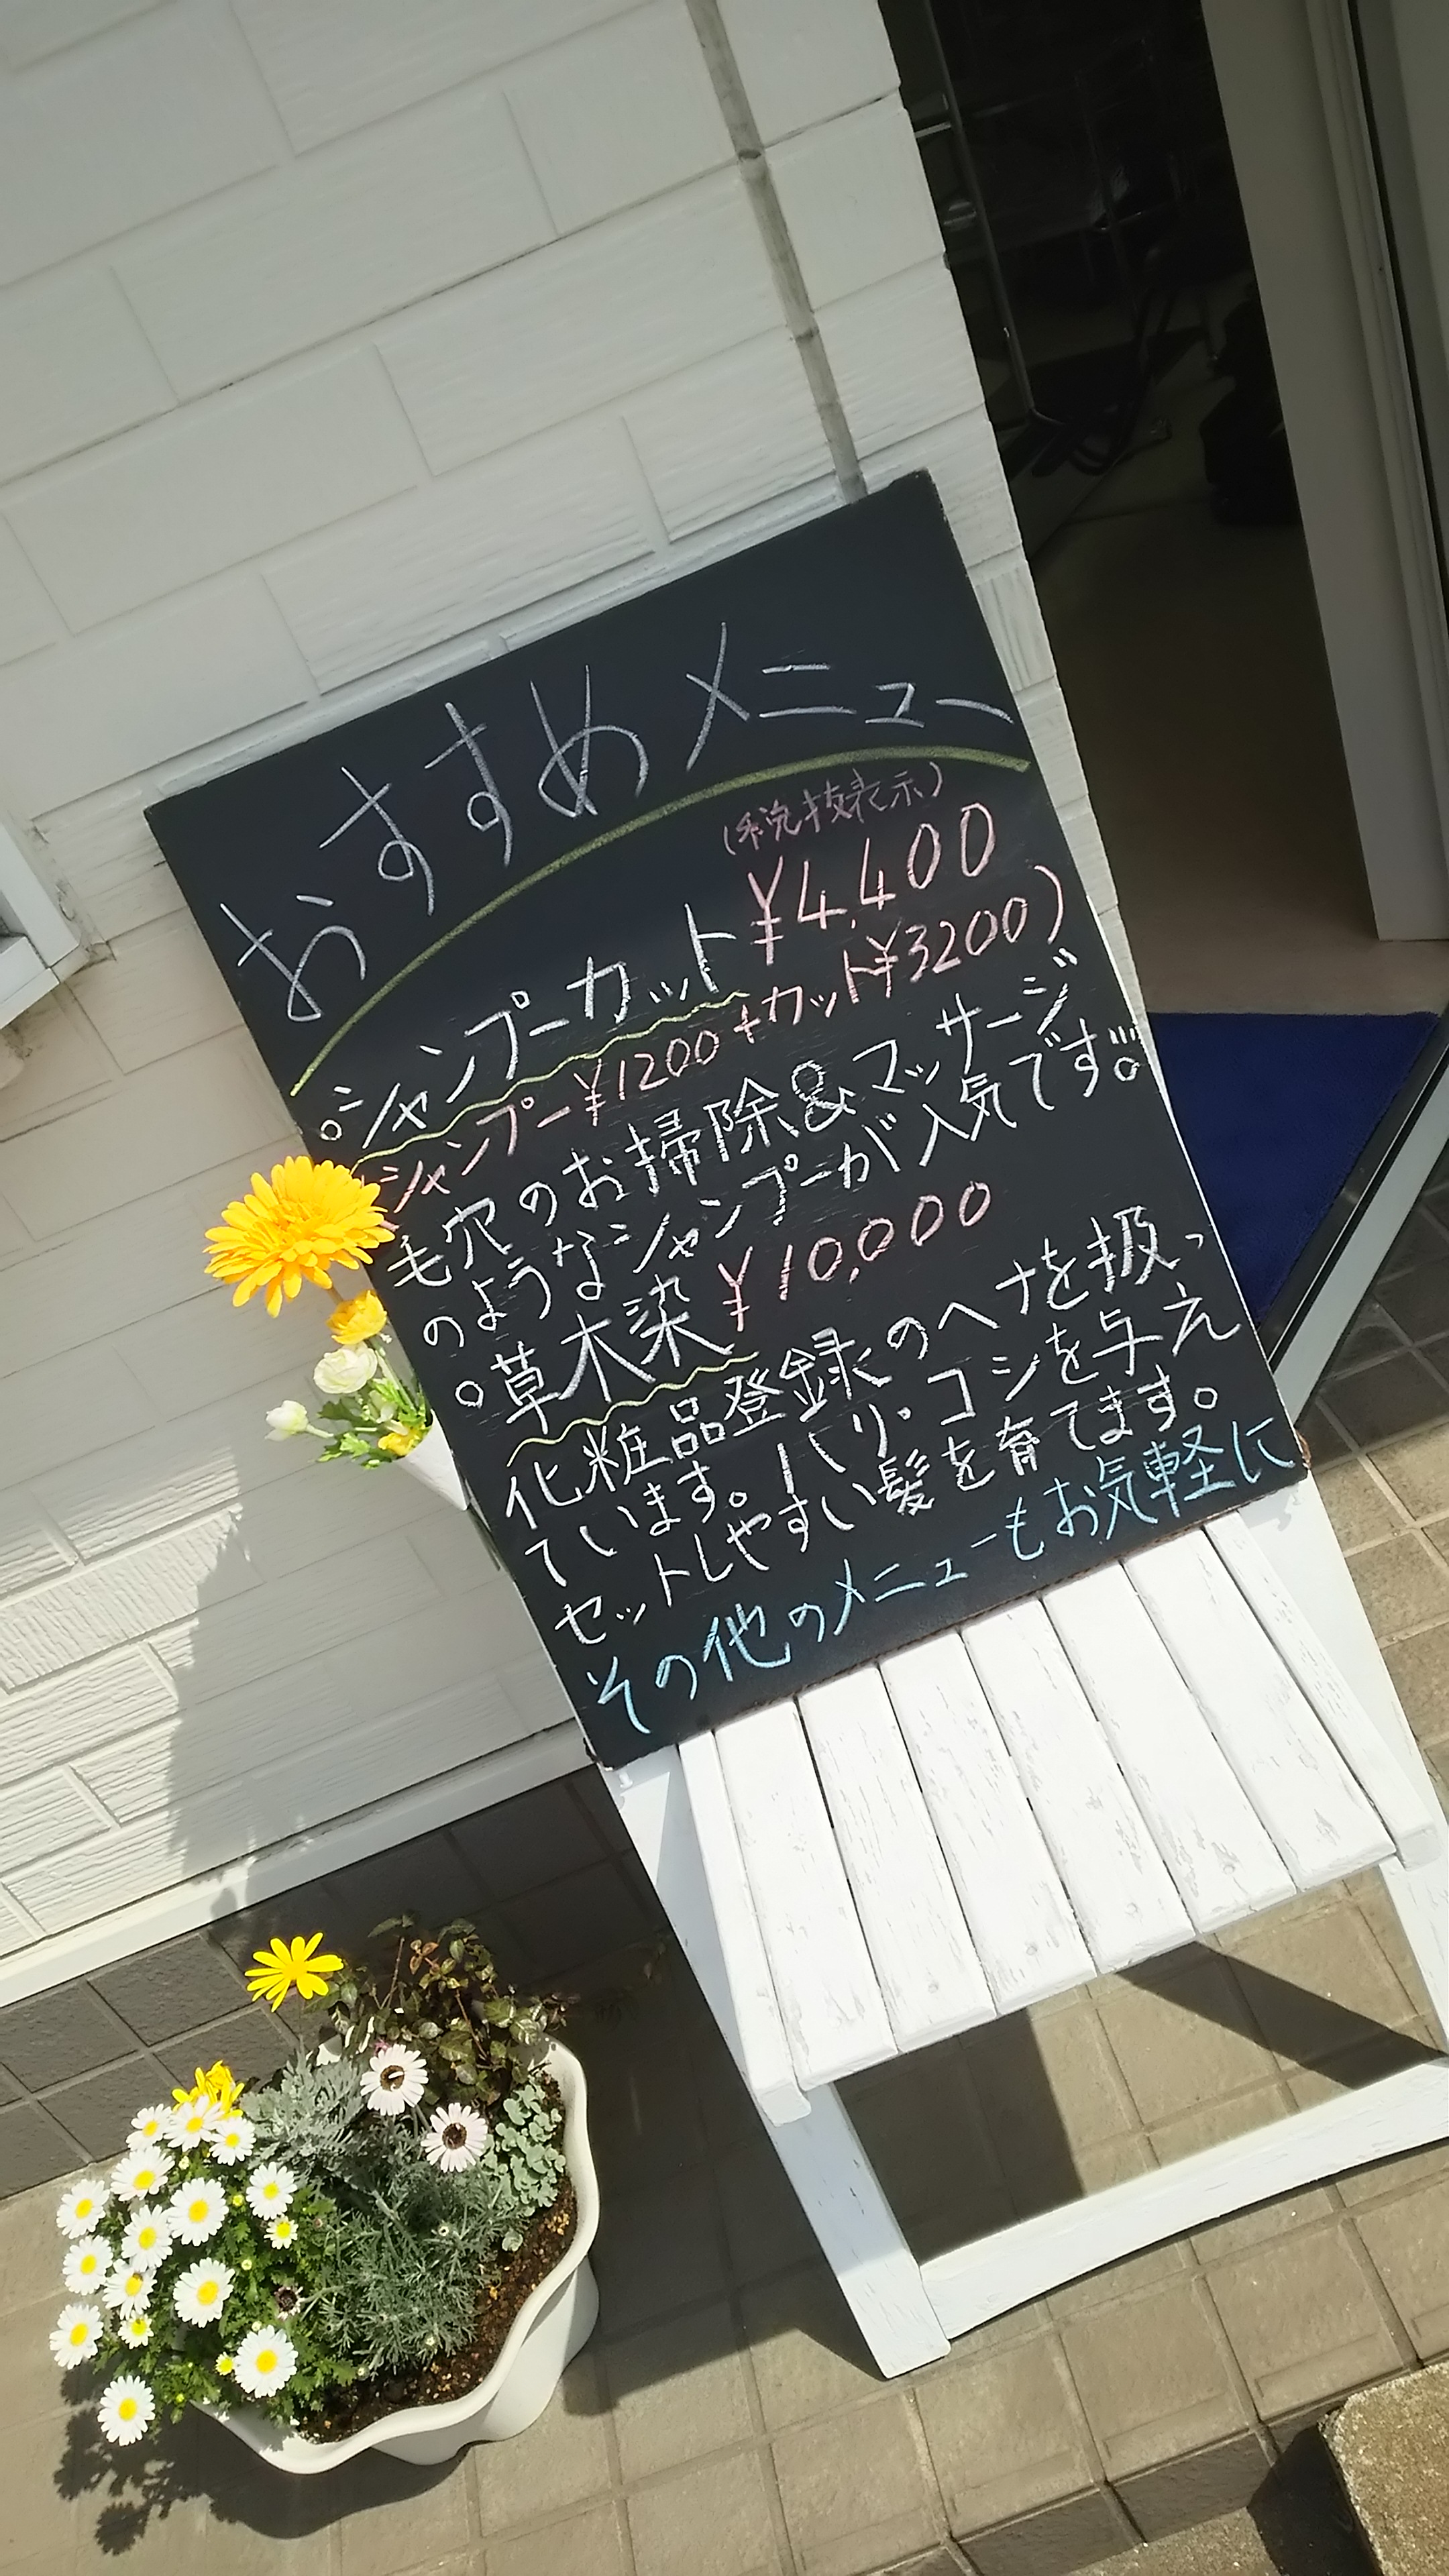 おすすめメニュー
(税抜表示)
○シャンプーカット ¥4,400
(シャンプー¥1200+カット¥3200)
毛穴のお掃除&マッサージ
のようなシャンプーが人気です!!!
○草木染 ¥10,000
化粧品登録のヘナを扱っ
ています。ハリ・コシを与え
セットしやすい髪を育てます。
その他のメニューもお気軽に